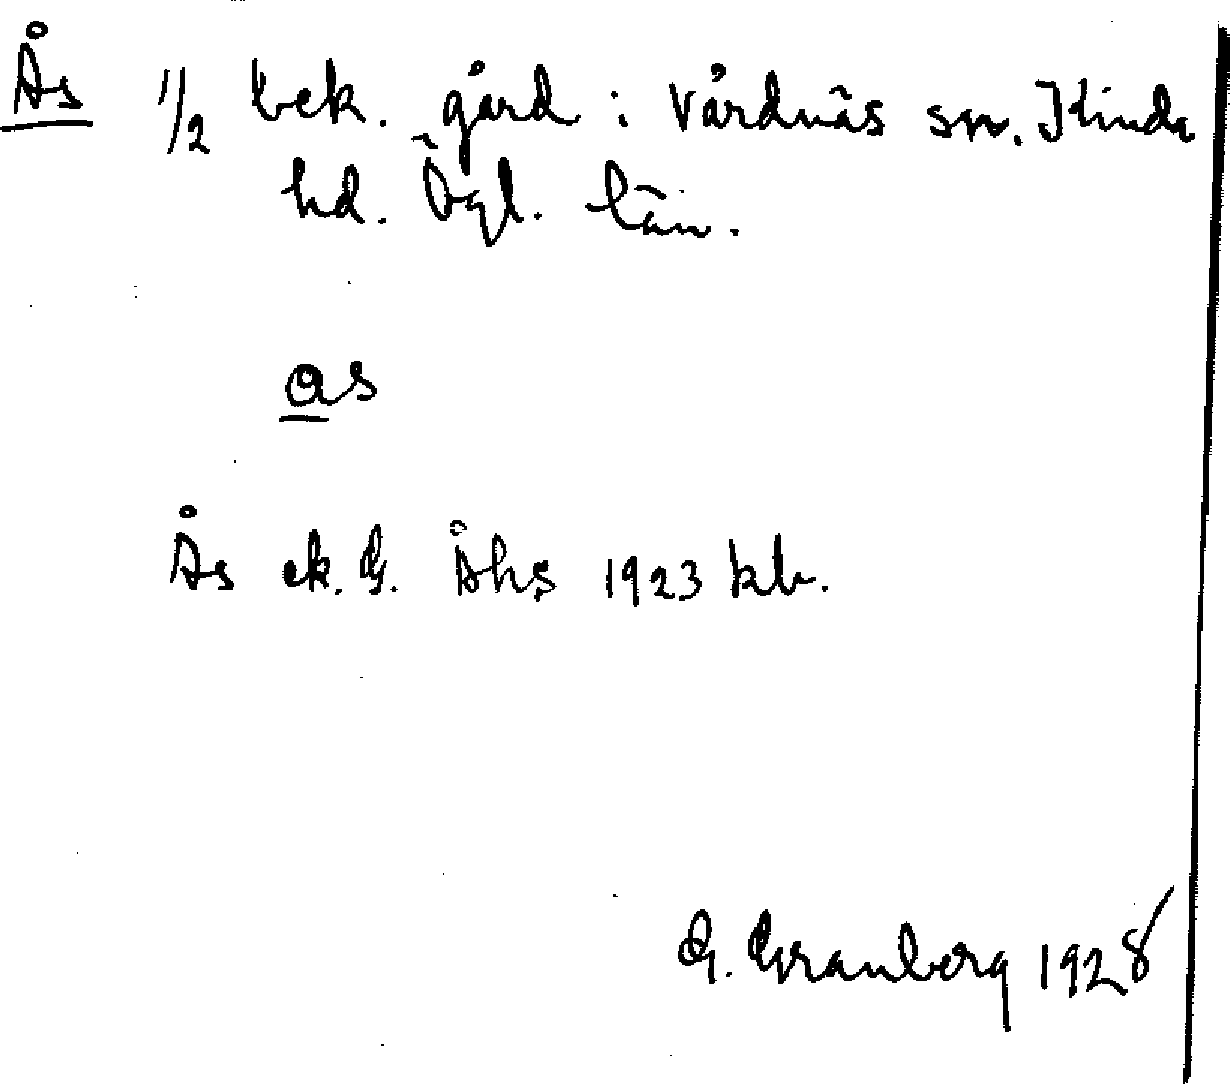 Ås 1/2 bek. gård i Vårdnäs sn. Kinda
hd. Ögl. län.
as
Ås ek. G. Åhs 1923 kb.
G. Granberg 1928